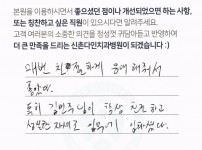 본원을 이용하시면서 좋으셨던 점이나 개선되었으면 하는 사항,
또는 칭찬하고 싶은 직원이 있으시다면 알려주세요.
고객 여러분의 소중한 의견을 정성껏 귀담아듣고 반영하며
더 큰 만족을 드리는 신촌다인치과병원이 되겠습니다 :)
매번 친절하게 응대해줘서
좋았다.
특히 김민주님이 항상 친절하고
성실한 자세로 임하기